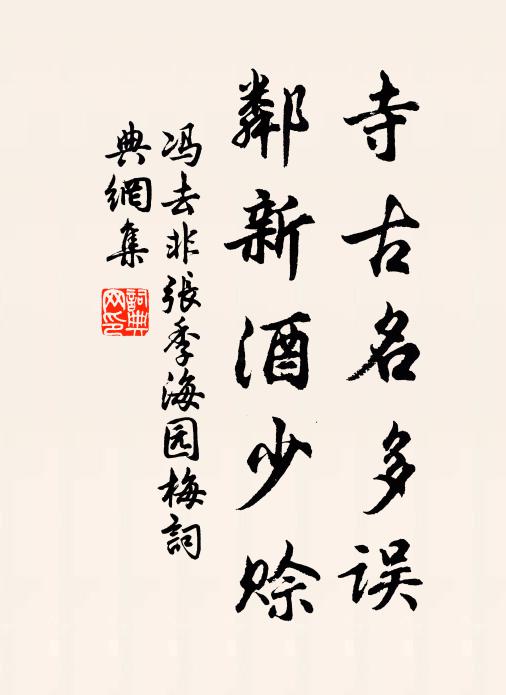 寺古名多误
鄰新酒少赊
冯去非張季海园梅詞
典網集
詞典网印